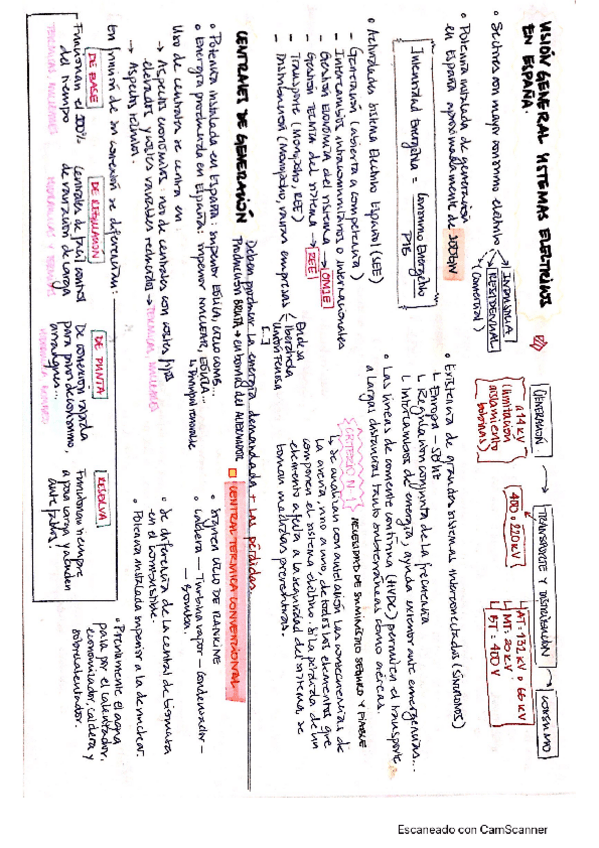 VISIÓN GENERAL SISTEMAS ELÉCTRICOS
EN ESPAÑA.
• Sectores con mayor consumo eléctrico
INDUSTRIA
RESIDENCIAL
(Comercial)
• Potencia instalada de generación
en España aproximadamente de 100GW
Intensidad Energética = Consumo Energético
PIB
• Actividades Sistema Eléctrico Español (SEE)
- Generación (abierta a competencia)
- Intercambios intracomunitarios o internacionales
- Gestión ECONÓMICA del sistema → OMIE
- Gestión TÉCNICA del sistema → REE
- Transporte (Monopolio, REE)
- Distribución (Monopolio, varias empresas
Endesa
Iberdrola
Unión Fenosa
[...]
GENERACIÓN → TRANSPORTE Y DISTRIBUCIÓN → CONSUMO
(limitación
aislamiento
bobinas)
400 o 220 KV
AT = 132 KV o 66 KV
MT = 20 KV
BT = 400 V
• Existencia de grandes sistemas interconectados (SÍNCRONOS)
↳ Europa - 50 Hz
↳ Regulación conjunta de la frecuencia
↳ Intercambios de energía, ayuda exterior ante emergencias...
• Las líneas de corriente continua (HVDC) permiten el transporte
a largas distancias tanto subterráneas como aéreas.
CRITERIO N-1
NECESIDAD DE SUMINISTRO SEGURO Y FIABLE
↳ Se analizan con antelación las consecuencias de
la avería, uno a uno, de todos los elementos que
componen el sistema eléctrico. Si la pérdida de un
elemento afecta a la seguridad del sistema, se
toman medidas preventivas.
CENTRALES DE GENERACIÓN
Deben producir la energía demandada + las pérdidas
PRODUCCIÓN BRUTA → en bornes del ALTERNADOR
• Potencia instalada en España: superior EÓLICA, CICLO COMB...
• Energía producida en España: superior NUCLEAR, EÓLICA...
Uso de centrales se centra en:
→ Aspectos económicos: uso de centrales con costes fijos
elevados y costes variables reducidos → TÉRMICAS, NUCLEARES
→ Aspectos técnicos.
En función de su conexión se diferencian:
DE BASE
Funcionan el 100%
del tiempo
TÉRMICAS, NUCLEARES
DE REGULACIÓN
control
de variación de carga
HIDRÁULICAS Y TÉRMICAS
DE PUNTA
De conexión rápida
para picos de consumo,
arranques...
RESERVA
Funcionan siempre
a poca carga y ayudan
ante fallos.
CENTRAL TÉRMICA CONVENCIONAL
• Siguen CICLO DE RANKINE
• Caldera - Turbina vapor - Condensador -
- Bomba.
• Se diferencia de la central de biomasa
en el combustible.
• Potencia instalada superior a la de nuclear.
• Previamente el agua
pasa por el calentador,
economizador, caldera y
sobrecalentador.
Escaneado con CamScanner